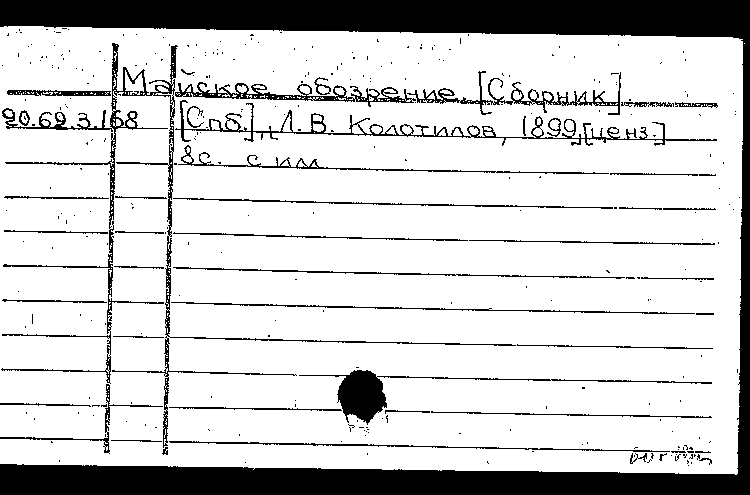 Майское обозрение. [Сборник].
20.62.3.168 [Спб.], Л.В. Колотилов, 1899, [ценз.]
8с. с илл.